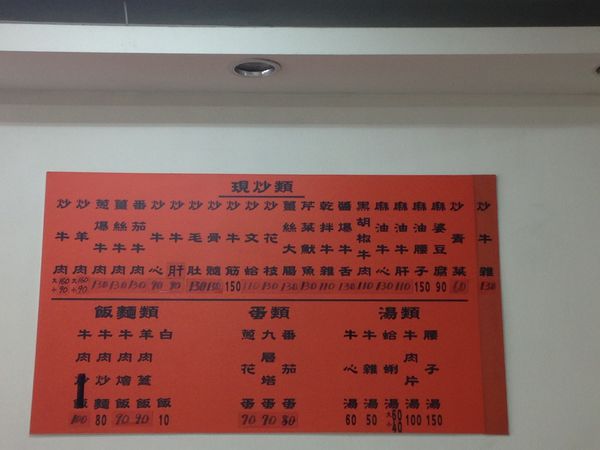 現炒類
炒牛肉 大160 小90
炒羊肉 大160 小90
蔥爆牛肉 130
薑絲牛肉 130
番茄牛肉 130
炒牛心 90
炒牛肝 90
炒毛肚 130
炒骨髓 130
炒牛筋 150
炒文蛤 110
炒花枝 130
薑絲大腸 110
芹菜魷魚 130
乾拌牛雜 110
醬爆牛舌 130
黑胡椒牛肉 110
麻油牛心 130
麻油牛肝 110
麻油腰子 150
麻婆豆腐 90
炒青菜 60
炒牛雜 130
飯麵類
牛肉炒飯 100
牛肉炒麵 80
牛肉燴飯 90
羊肉蓋飯 90
白飯 10
蛋類
蔥花蛋 70
九層塔蛋 70
番茄蛋 80
湯類
牛心湯 60
牛雜湯 50
蛤蜊湯 大60 小40
牛肉片湯 100
腰子湯 150